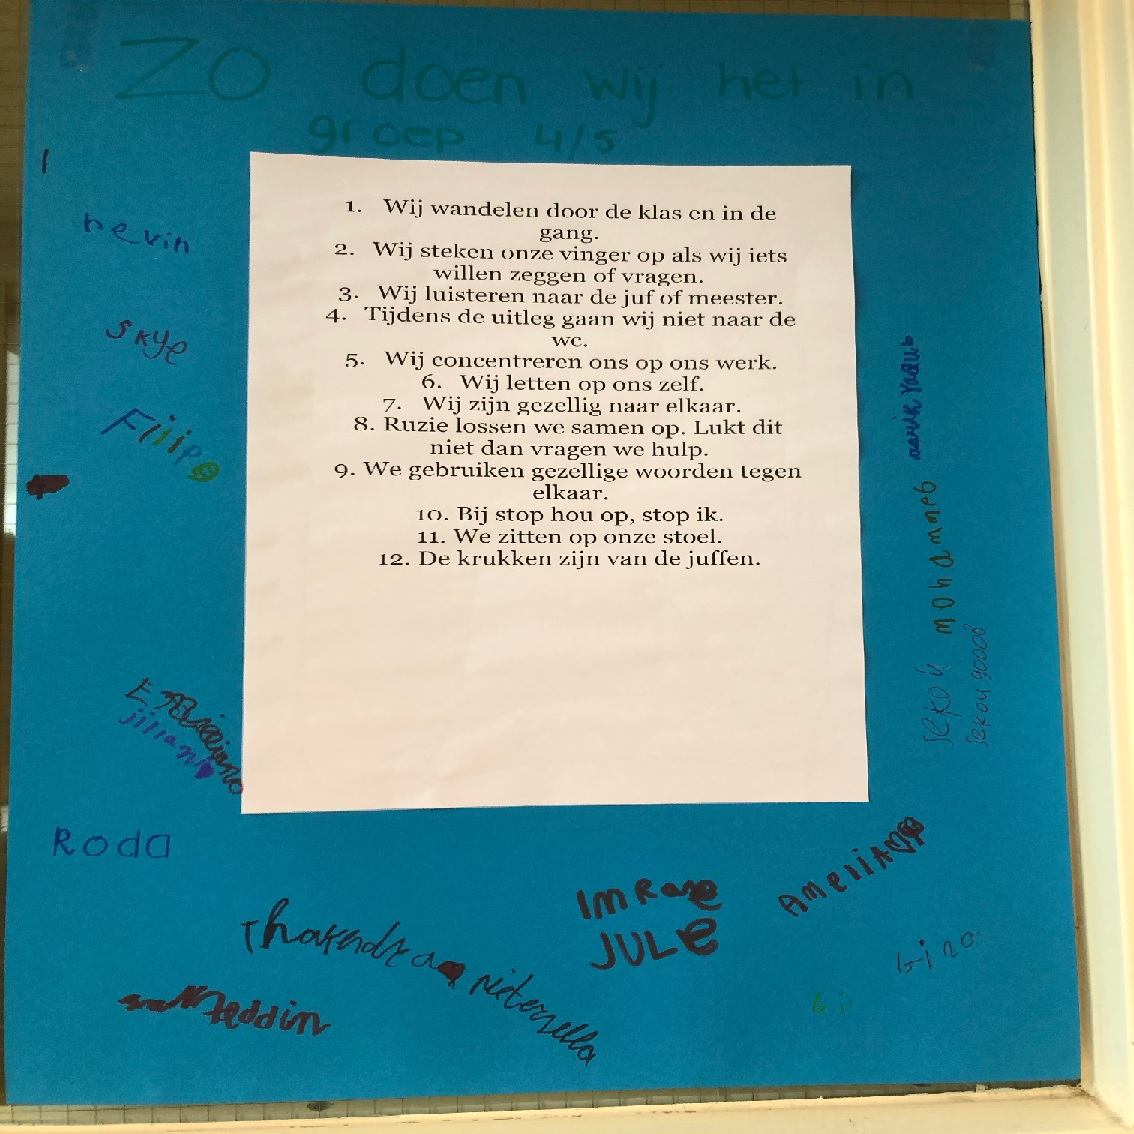 Zo doen wij het in
groep 4/5
1. Wij wandelen door de klas en in de
gang.
2. Wij steken onze vinger op als wij iets
willen zeggen of vragen.
3. Wij luisteren naar de juf of meester.
4. Tijdens de uitleg gaan wij niet naar de
wc.
5. Wij concentreren ons op ons werk.
6. Wij letten op ons zelf.
7. Wij zijn gezellig naar elkaar.
8. Ruzie lossen we samen op. Lukt dit
niet dan vragen we hulp.
9. We gebruiken gezellige woorden tegen
elkaar.
10. Bij stop hou op, stop ik.
11. We zitten op onze stoel.
12. De krukken zijn van de juffen.
nevin
Skye
Filip
jiliano
Roda
JULE
AmeliA
mohammeb
sekou